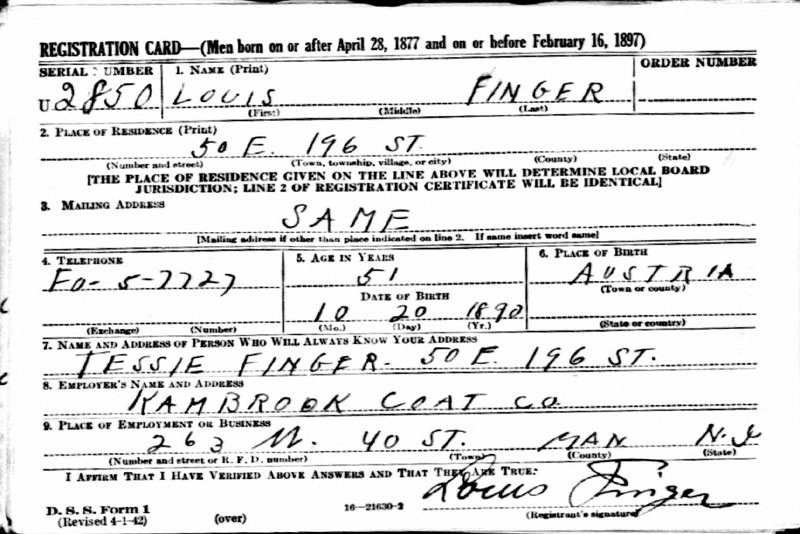 REGISTRATION CARD—(Men born on or after April 28, 1877 and on or before February 16, 1897)
SERIAL UMBER 1. NAME (Print) ORDER NUMBER
U 2850 LOUIS FINGER
(First) (Middle) (Last)
2. PLACE OF RESIDENCE (Print)
50 E. 196 ST.
(Number and street) (Town, township, village, or city) (County) (State)
[THE PLACE OF RESIDENCE GIVEN ON THE LINE ABOVE WILL DETERMINE LOCAL BOARD
JURISDICTION; LINE 2 OF REGISTRATION CERTIFICATE WILL BE IDENTICAL]
3. MAILING ADDRESS
SAME
[Mailing address if other than place indicated on line 2. If same insert word same]
4. TELEPHONE 5. AGE IN YEARS 6. PLACE OF BIRTH
Fo- 5-7727 51 AUSTRIA
DATE OF BIRTH (Town or county)
10 20 1890
(Exchange) (Number) (Mo.) (Day) (Yr.) (State or country)
7. NAME AND ADDRESS OF PERSON WHO WILL ALWAYS KNOW YOUR ADDRESS
TESSIE FINGER- 50 E. 196 ST.
8. EMPLOYER'S NAME AND ADDRESS
KAMBROOK COAT CO.
9. PLACE OF EMPLOYMENT OR BUSINESS
263 W. 40 ST. MAN N.Y
(Number and street or R. F. D. number) (Town) (County) (State)
I AFFIRM THAT I HAVE VERIFIED ABOVE ANSWERS AND THAT THEY ARE TRUE.
Louis Finger
D. S. S. Form 1
(Revised 4-1-42) (over) 16—21630-2 (Registrant's signature)